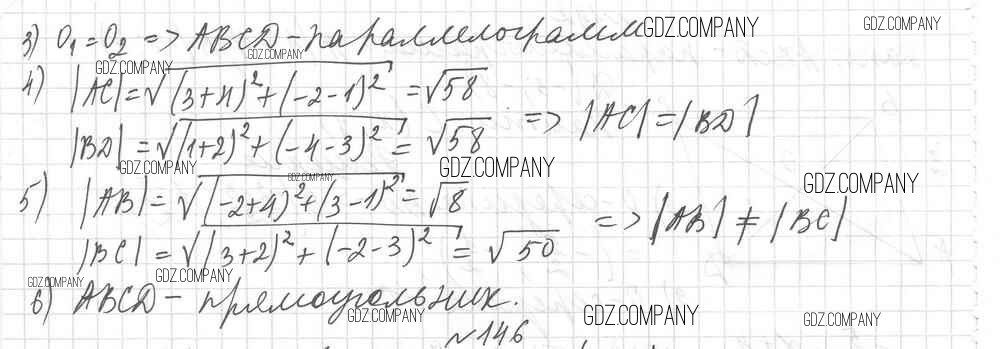 3) O₁ = O₂ => ABCD – параллелограмм
4) |AC| = √((3+4)² + (-2-1)²) = √58
|BD| = √((1+2)² + (-4-3)²) = √58 => |AC| = |BD|
5) |AB| = √((-2+4)² + (3-1)²) = √8
|BC| = √((3+2)² + (-2-3)²) = √50 => |AB| ≠ |BC|
6) ABCD – прямоугольник.
№146
GDZ.COMPANY
GDZ.COMPANY
GDZ.COMPANY
GDZ.COMPANY
GDZ.COMPANY
GDZ.COMPANY
GDZ.COMPANY
GDZ.COMPANY
GDZ.COMPANY
GDZ.COMPANY
GDZ.COMPANY
GDZ.COMPANY
GDZ.COMPANY